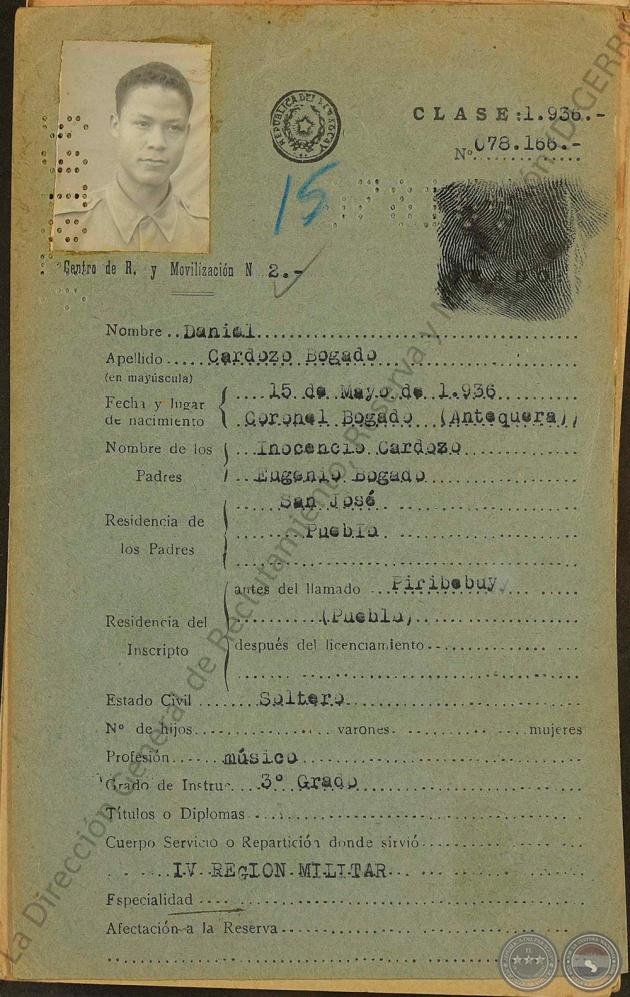 REPUBLICA DEL PARAGUAY
CLASE: 1.936.-
Nº 078.166.-
15
Centro de R. y Movilización N 2.-
Nombre Daniel
Apellido Cardozo Bogado
(en mayúscula)
Fecha y lugar de nacimiento 15 de Mayo de 1.936
Coronel Bogado (Antequera)
Nombre de los Padres Inocencio Cardozo
Eugenio Bogado
Residencia de los Padres San José
Pueblo
Residencia del Inscripto antes del llamado Piribebuy
(Pueblo)
después del licenciamiento
Estado Civil Soltero
Nº de hijos varones mujeres
Profesión músico
Grado de Instruc. 3º Grado
Títulos o Diplomas
Cuerpo Servicio o Repartición donde sirvió
IV REGION MILITAR
Especialidad
Afectación a la Reserva
La Dirección General de Reclutamiento, Reserva y